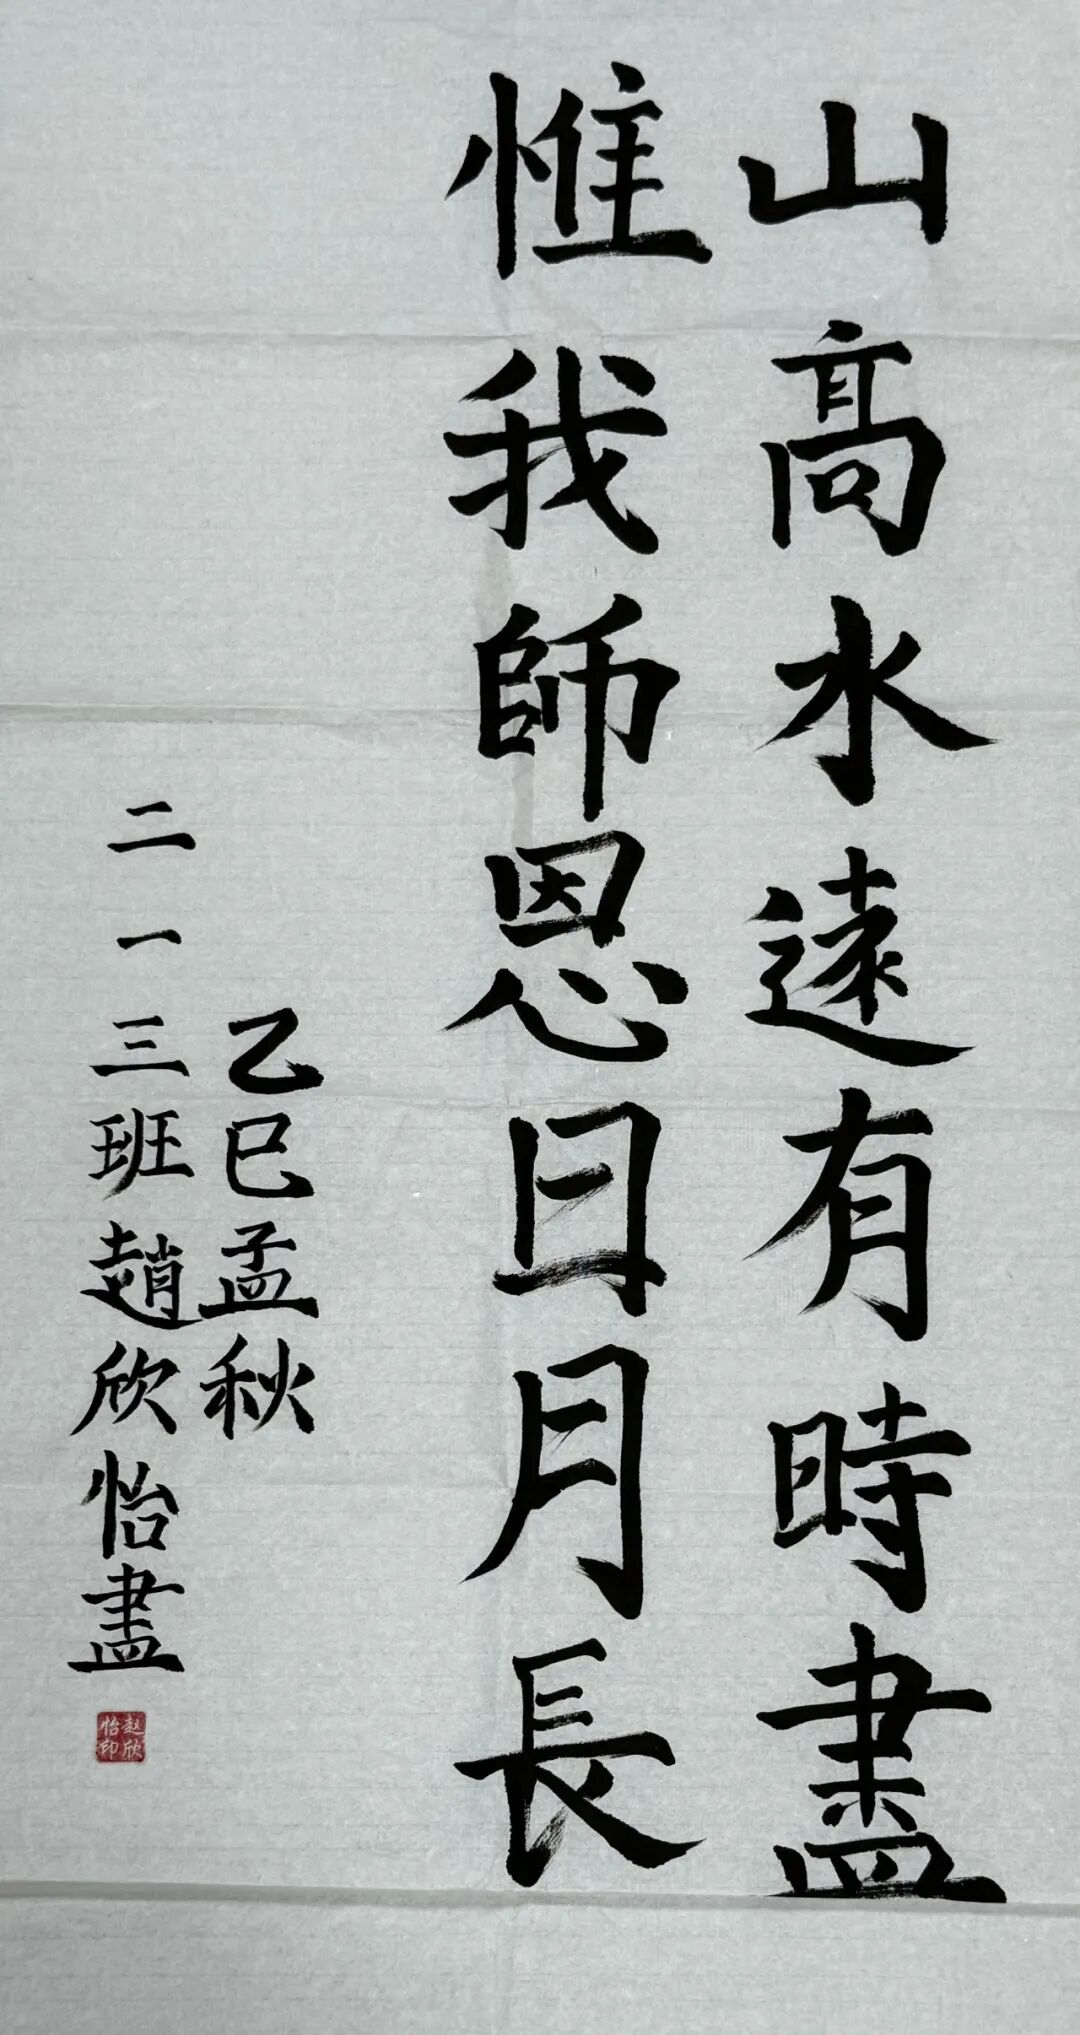 山高水遠有時盡
惟我師恩日月長
乙巳孟秋
二一三班趙欣怡盡
赵欣
怡印